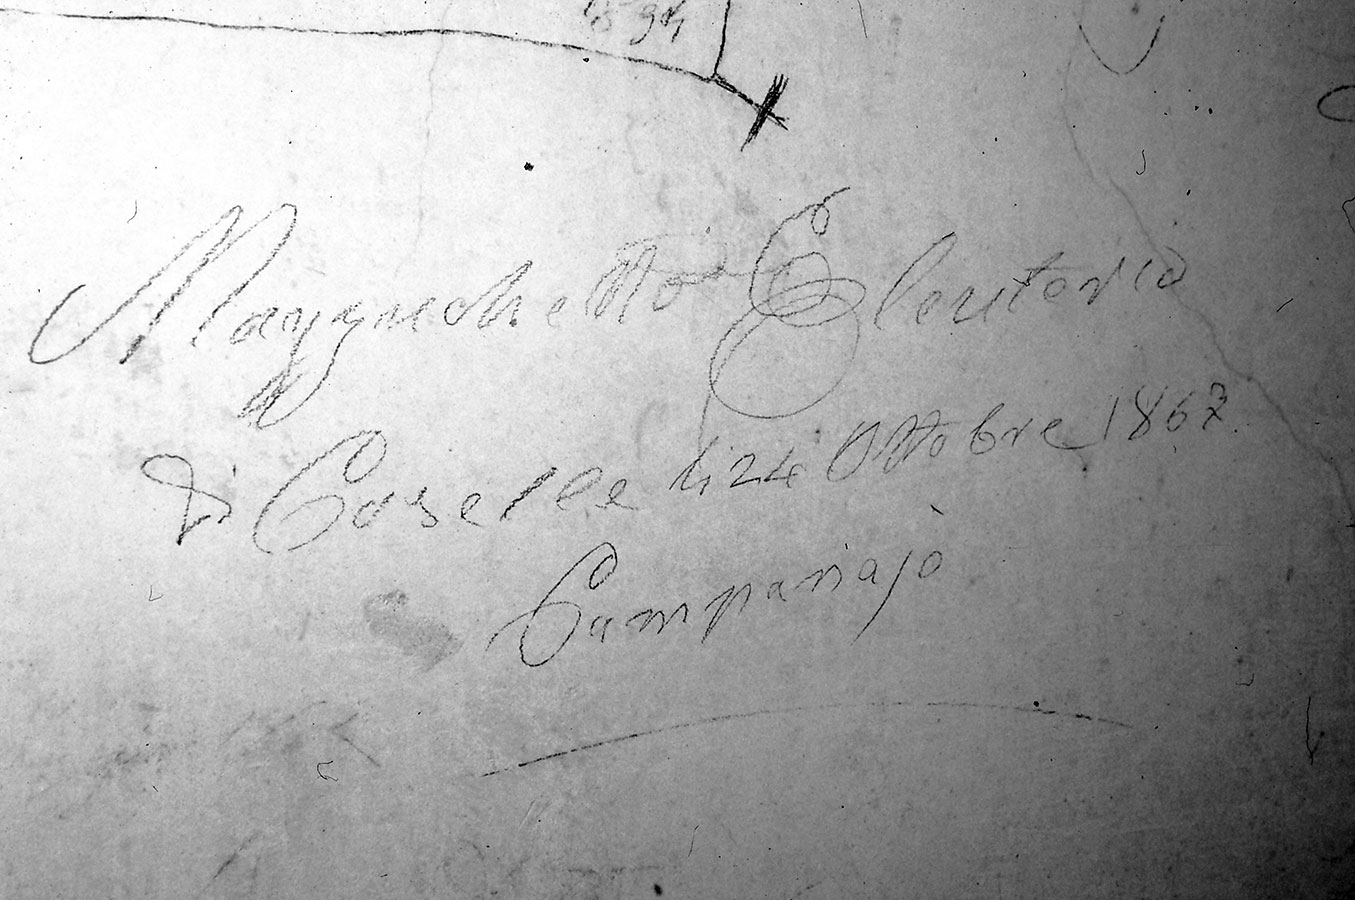 1594
Mazzuchetto Eleuterio
Di Caselle li 24 Ottobre 1867
Campanajo